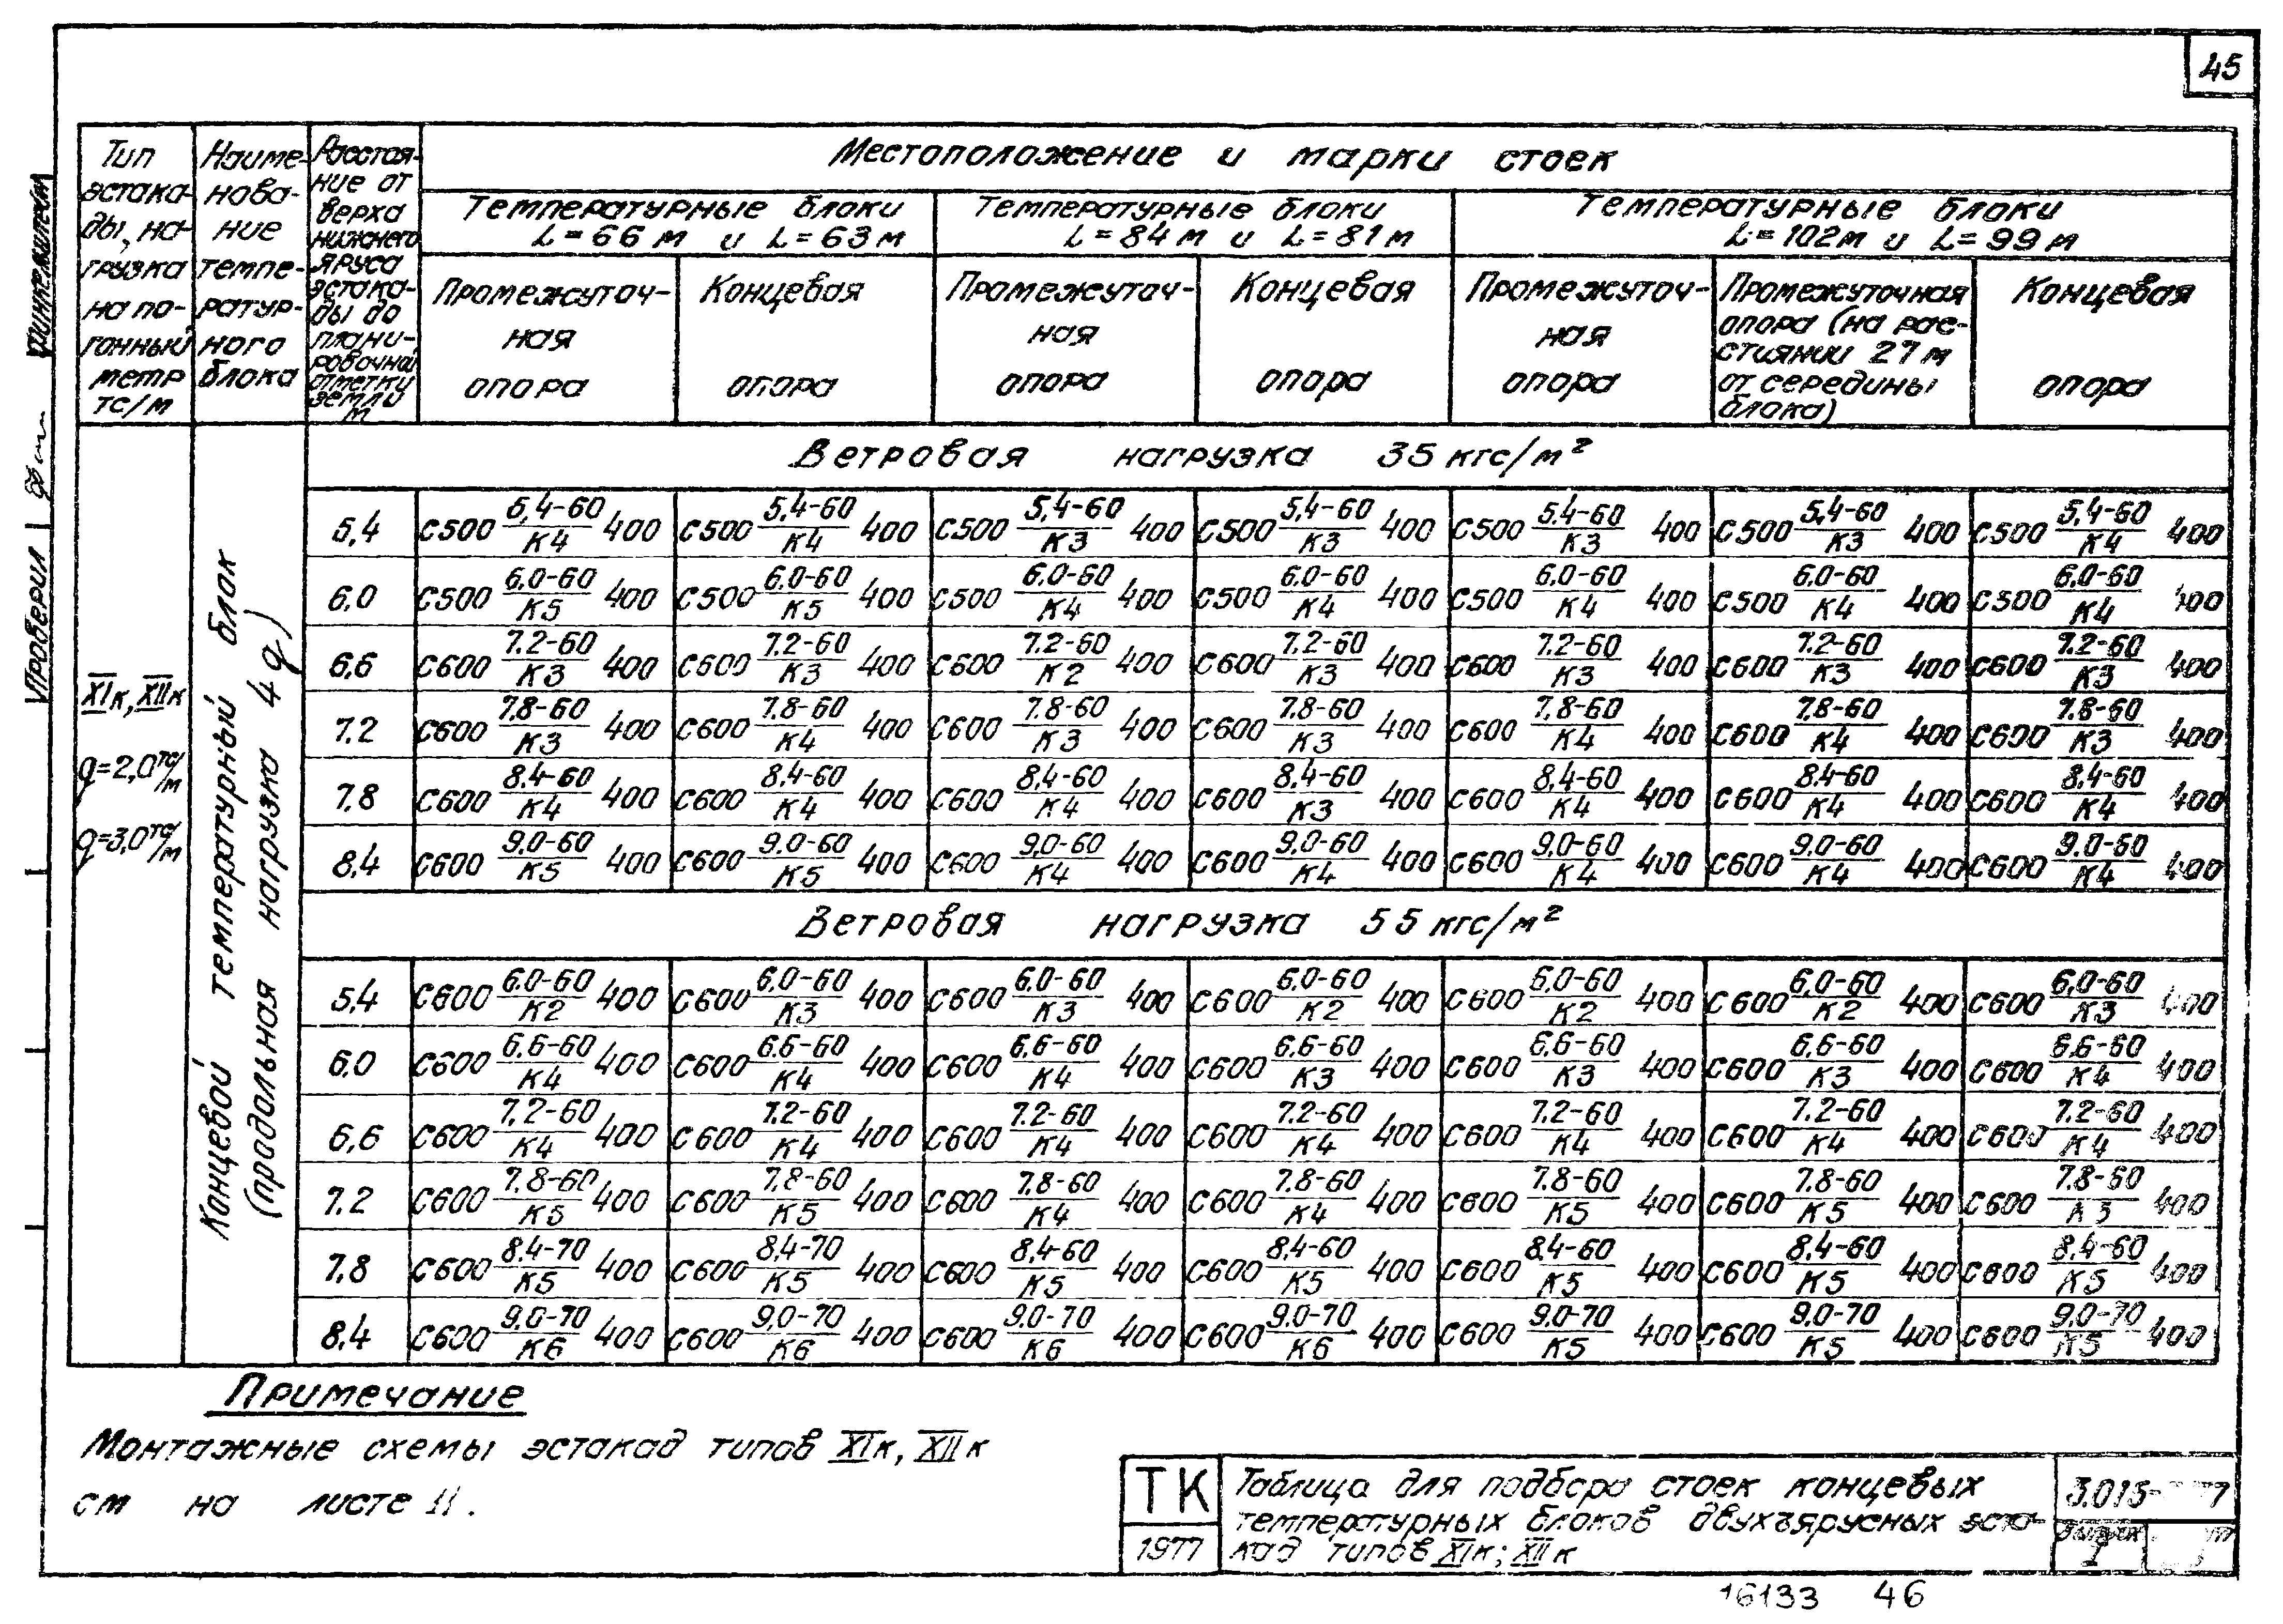 45
Проверил
Тип эстакады, нагрузка на погонный метр тс/м
Наименование температурного блока
Расстояние от верха нижнего яруса эстакады до планировочной отметки земли м
Местоположение и марки стоек
Температурные блоки L=66м и L=63м
Температурные блоки L=84м и L=81м
Температурные блоки L=102м и L=99м
Промежуточная опора
Концевая опора
Промежуточная опора
Концевая опора
Промежуточная опора
Промежуточная опора (на расстоянии 27м от середины блока)
Концевая опора
XIк, XIIк
q=2,0 тс/м
q=3,0 тс/м
Концевой температурный блок
(продольная нагрузка 4q)
Ветровая нагрузка 35 кгс/м²
5,4 С500 5,4-60/К4 400 С500 5,4-60/К4 400 С500 5,4-60/К3 400 С500 5,4-60/К3 400 С500 5,4-60/К3 400 С500 5,4-60/К3 400 С500 5,4-60/К4 400
6,0 С500 6,0-60/К5 400 С500 6,0-60/К5 400 С500 6,0-60/К4 400 С500 6,0-60/К4 400 С500 6,0-60/К4 400 С500 6,0-60/К4 400 С500 6,0-60/К4 400
6,6 С600 7.2-60/К3 400 С600 7.2-60/К3 400 С600 7.2-60/К2 400 С600 7.2-60/К3 400 С600 7.2-60/К3 400 С600 7.2-60/К3 400 С600 7.2-60/К3 400
7.2 С600 7.8-60/К3 400 С600 7.8-60/К4 400 С600 7.8-60/К3 400 С600 7.8-60/К3 400 С600 7.8-60/К4 400 С600 7.8-60/К4 400 С600 7.8-60/К3 400
7,8 С600 8,4-60/К4 400 С600 8,4-60/К4 400 С600 8,4-60/К4 400 С600 8,4-60/К3 400 С600 8,4-60/К4 400 С600 8,4-60/К4 400 С600 8,4-60/К4 400
8,4 С600 9.0-60/К5 400 С600 9,0-60/К5 400 С600 9,0-60/К4 400 С600 9,0-60/К4 400 С600 9,0-60/К4 400 С600 9.0-60/К4 400 С600 9.0-60/К4 400
Ветровая нагрузка 55 кгс/м²
5,4 С600 6.0-60/К2 400 С600 6.0-60/К3 400 С600 6,0-60/К3 400 С600 6.0-60/К2 400 С600 6,0-60/К2 400 С600 6,0-60/К2 400 С600 6,0-60/К3 400
6,0 С600 6,6-60/К4 400 С600 6,6-60/К4 400 С600 6,6-60/К4 400 С600 6,6-60/К3 400 С600 6,6-60/К3 400 С600 6,6-60/К3 400 С600 6,6-60/К4 400
6,6 С600 7.2-60/К4 400 С600 7.2-60/К4 400 С600 7.2-60/К4 400 С600 7.2-60/К4 400 С600 7.2-60/К4 400 С600 7.2-60/К4 400 С600 7.2-60/К4 400
7.2 С600 7.8-60/К5 400 С600 7.8-60/К5 400 С600 7.8-60/К4 400 С600 7.8-60/К4 400 С600 7.8-60/К5 400 С600 7.8-60/К5 400 С600 7.8-60/К3 400
7,8 С600 8,4-70/К5 400 С600 8,4-70/К5 400 С600 8,4-60/К5 400 С600 8,4-60/К5 400 С600 8,4-60/К5 400 С600 8,4-60/К5 400 С600 8,4-60/К5 400
8,4 С600 9.0-70/К6 400 С600 9,0-70/К6 400 С600 9.0-70/К6 400 С600 9.0-70/К6 400 С600 9.0-70/К5 400 С600 9.0-70/К5 400 С600 9.0-70/К5 400
Примечание
Монтажные схемы эстакад типов XIк, XIIк
см на листе 11.
ТК
1977
Таблица для подбора стоек концевых
температурных блоков двухъярусных эста-
кад типов XIк; XIIк
3.015-
I
16133 46